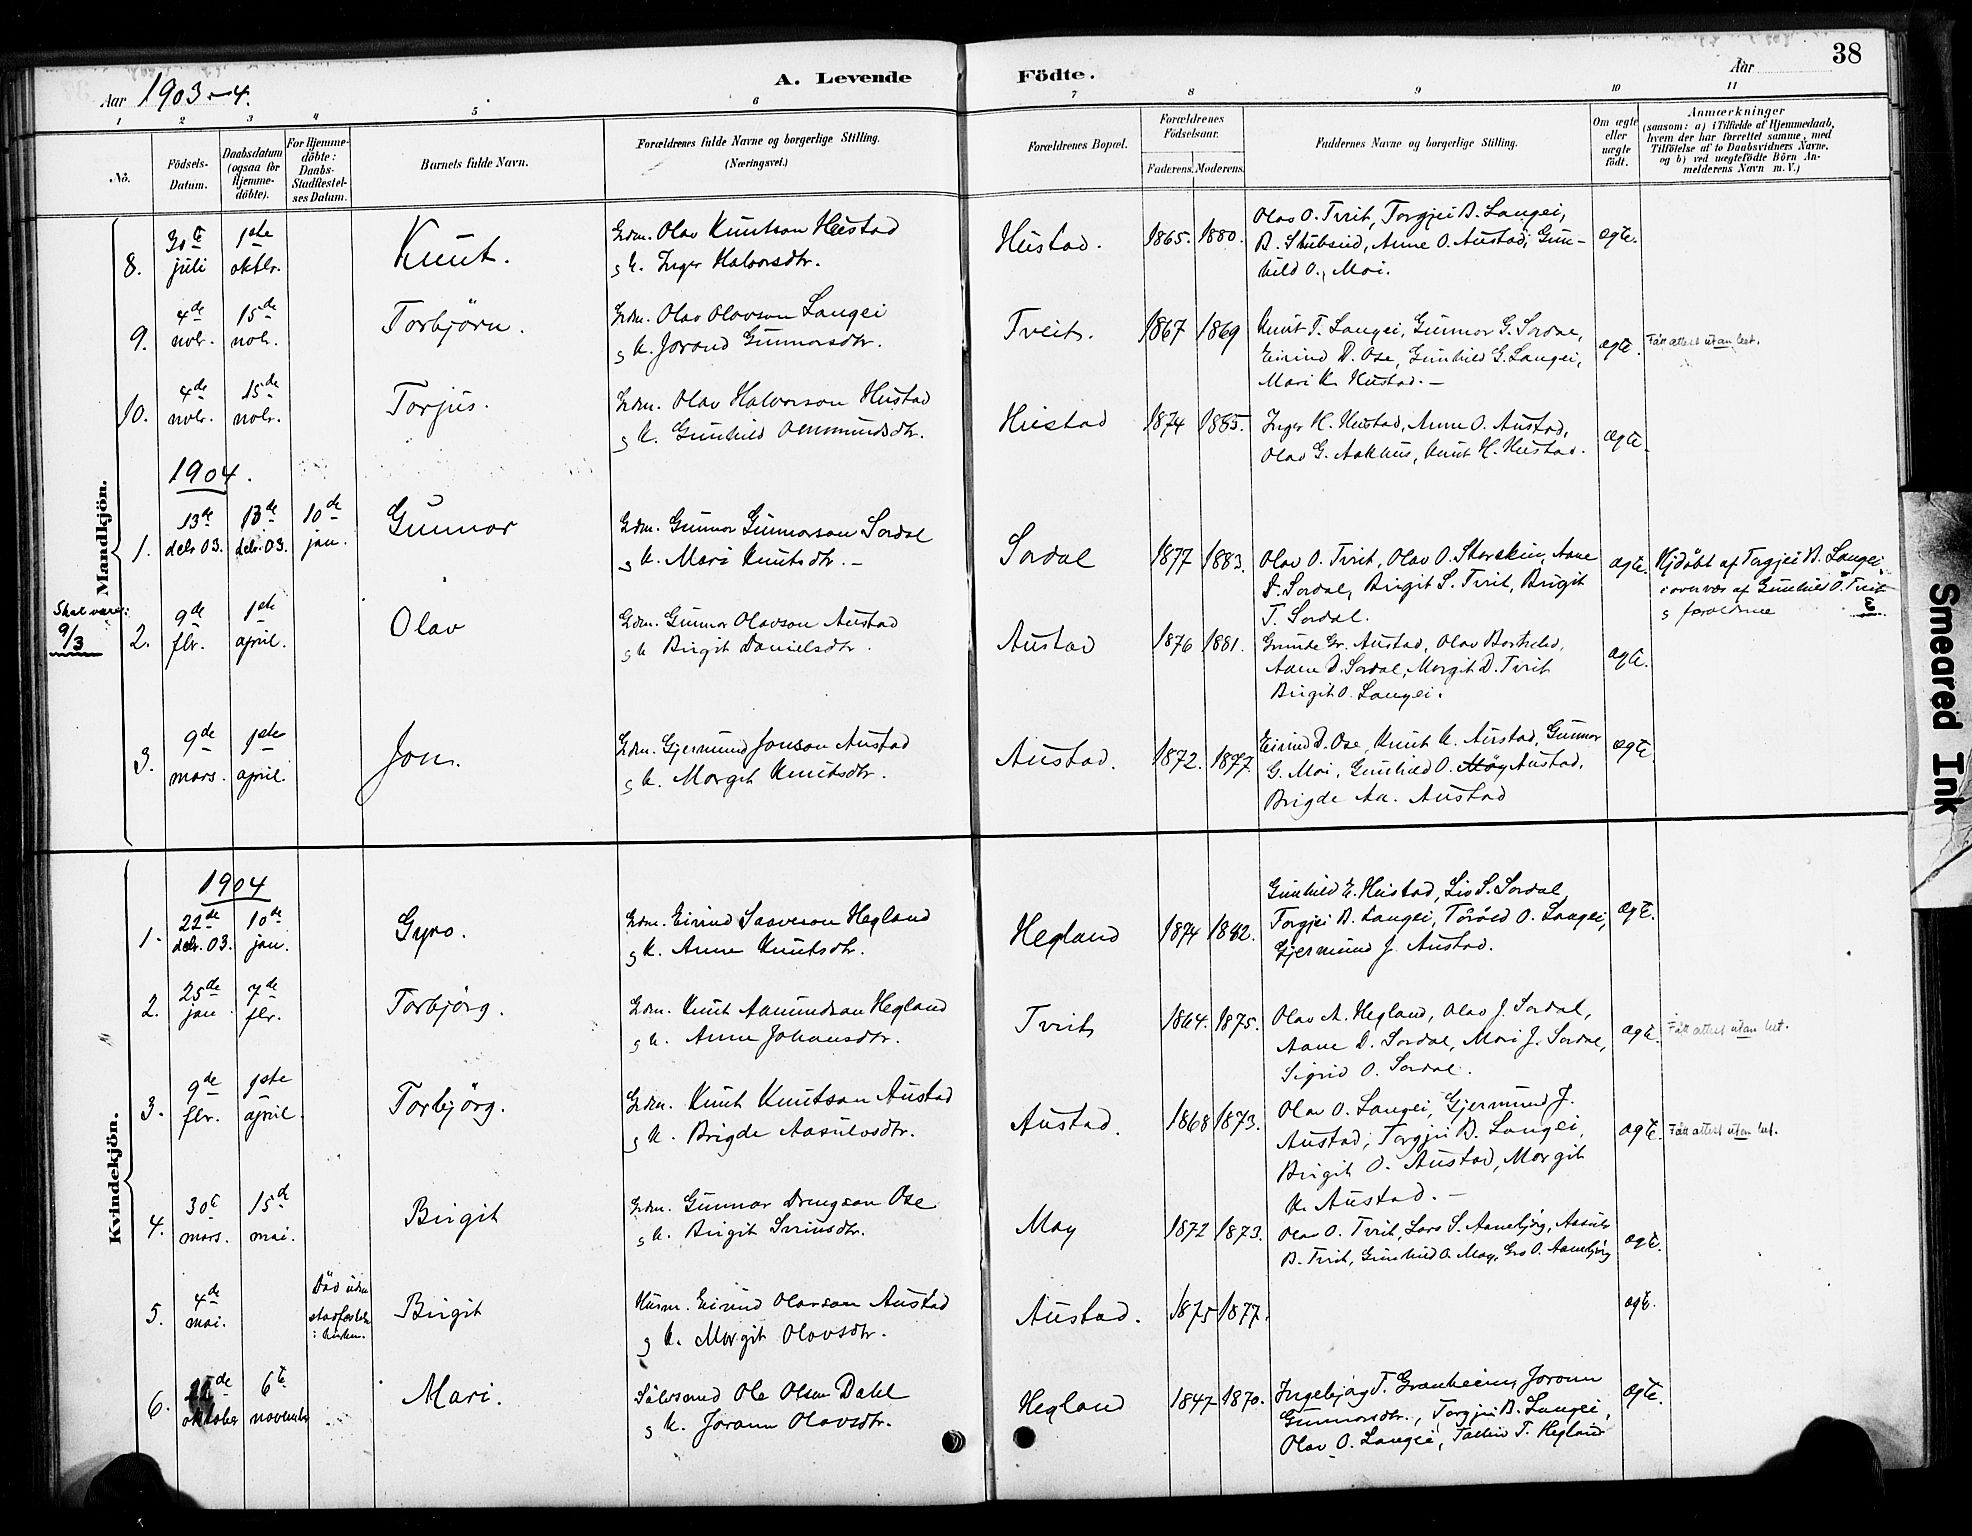 38
Aar 1903-4.
A. Levende Födte.
Aar
1 2 3 4 5 6 7 8 9 10 11
No.
Födsels-Datum.
Daabsdatum (ogsaa for Hjemme-döbte).
For Hjemme-döbte: Daabs-Stadfæstel-ses Datum.
Barnets fulde Navn.
Forældrenes fulde Navne og borgerlige Stilling. (Næringsvei.)
Forældrenes Bopæl.
Forældrenes Födselsaar.
Faderens. Moderens.
Faddernes Navne og borgerlige Stilling.
Om ægte eller uægte födt.
Anmærkninger
(saasom: a) i Tilfælde af Hjemmedaab, hvem der har forrettet samme, med Tilföielse af to Daabsvidners Navne, og b) ved uægtefödte Börn An-melderens Navn m. V.)
Mandkjön.
8. juli 1ste oktbr. Knut. Grdm. Olav Knutson Hustad
Hustad. 1865. 1880. Olav O. Tveit, Torgjei B. Langei,
g k. Inger Halvorsdtr.
Anne O. Austad, Gun-
hild O. Moi.
ægte.
9. 4de novbr. 15de novbr. Torbjörn. Grdm. Olav Olavson Langei
g k. Jorand Gunnarsdtr.
Tveit. 1867 1869 Knut T. Langei, Gunnar G. Sordal,
Eivind D. Ose, Gunhild G. Langei,
Mari K. Hustad. —
ægte. Fått attest utan
10. 4de novbr. 15de novbr. Torjus. Grdm. Olav Halvorson Hustad
g k. Gunhild Aanmundsdtr.
Hustad 1874 1885. Inger H. Hustad, Anne O. Austad,
Olav G. Aakhus, Knut H. Hustad.
ægte.
1904.
1. 13de decbr. 03. 13de decbr. 03. 10de jan. Gunnar Grdm. Gunnar Gunnarson Sordal
g k. Mari Knutsdtr. —
Sordal 1877 1883. Olav O. Tveit, Olav O. Aane
Sordal, Birgit S. Tveit, Birgit
T. Sordal.
ægte. Hjdöbt af Torgjei B. Langei
i overvær af Gunhild O. Tveit
g forældrene
Skal være:
9/3
2. 9de fbr. 1ste april. Olav Grdm. Gunnar Olavson Austad
g k Birgit Danielsdtr.
Austad 1876 1881. Austad, Olav
Aane D. Sordal, Morgit D. Tveit
Birgit O. Langei.
ægte.
3. 9de mars. 1ste april. Jon. Grdm. Gjermund Jonson Austad
g k. Morgit Knutsdtr.
Austad. 1872. 1877. Eivind D. Ose, Knut K. Austad, Gunnar
G. Moi, Gunhild O. Austad,
Brigde Aa. Austad
ægte
Kvindekjön.
1904
1. 22de decbr. 03. 10de jan. Gyro. Grdm. Eivind Saaveson Hegland
g k. Anne Knutsdtr.
Hegland 1874 1882. Gunhild E. Hustad, Liv S. Sordal,
Torgjei B. Langei, O. Langei,
Gjermund J. Austad.
ægte.
2. 25de jan. 7de fbr. Torbjörg. Grdm. Knut Aamundson Hegland
g k. Anne Johansdtr.
Tveit 1864. 1875. Olav A. Hegland, Olav J. Sordal,
Aane D. Sordal, Mari J. Sordal,
Sigrid O. Sordal.
ægte. Fått attest utan
3. 9de fbr. 1ste april. Torbjörg. Grdm. Knut Knutson Austad
g k. Brigde Aasulvsdtr.
Austad. 1868 1873. Olav O. Langei, Gjermund J.
Austad, Torgjei B. Langei,
Birgit O. Austad, Morgit
K. Austad. —
ægte. Fått attest utan
4. 30te mars. 15de mai. Birgit Grdm. Gunnar Drengson Ose
g k. Birgit Sveinsdtr.
May 1872 1873. Olav O. Tveit, Lars S. Aanebjörg, Aasulv
B. Tveit, Gunhild O. May, Gro O. Aanebjörg
ægte.
5. 4de mai. Död uden stadfæstelse i kirken. Birgit Husm. Eivind Olavson Austad
g k. Morgit Olavsdtr.
Austad. 1875 1877. ægte.
6. oktober 6te november Mari. Ole Olsen Dahl
g k. Jorann Olavsdtr.
Hegland 1847 1870. Ingebjörg T. Granheim, Jorann
Gunnarsdtr., Torgjei B. Langei,
Olav O. Langei, T. Hegland
ægte.
Smeared Ink